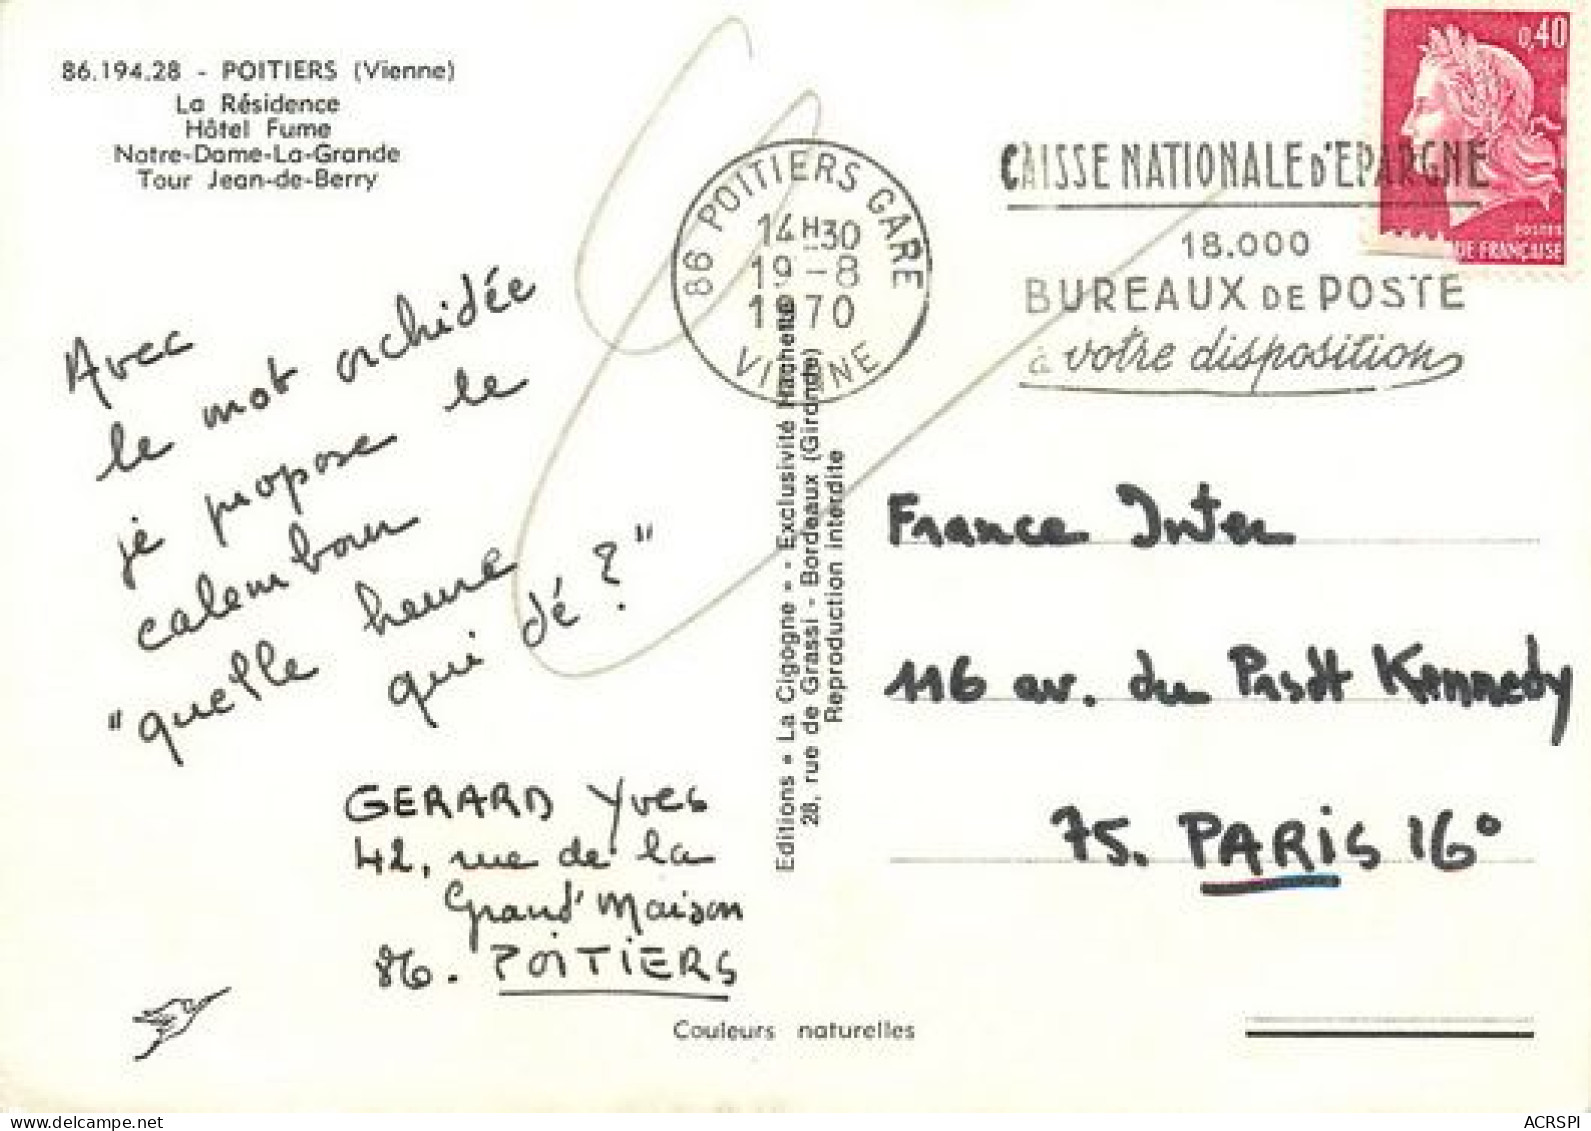 86.194.28 - POITIERS (Vienne)
La Résidence
Hôtel Fume
Notre-Dame-La-Grande
Tour Jean-de-Berry
0,40
POSTES
UE FRANÇAISE
86 POITIERS GARE
14H30
19-8
1970
VIENNE
CAISSE NATIONALE D'EPARGNE
18.000
BUREAUX DE POSTE
à votre disposition
Avec
le mot orchidée
je propose le
calembour
"quelle heure
qui dé ?"
GERARD Yves
42, rue de la
Grand'Maison
86. POITIERS
Editions « La Cigogne » - Exclusivité Hachette
28, rue de Grassi - Bordeaux (Gironde)
Reproduction interdite
France Inter
116 av. du Prsdt Kennedy
75. PARIS 16°
Couleurs naturelles
ACRSPI